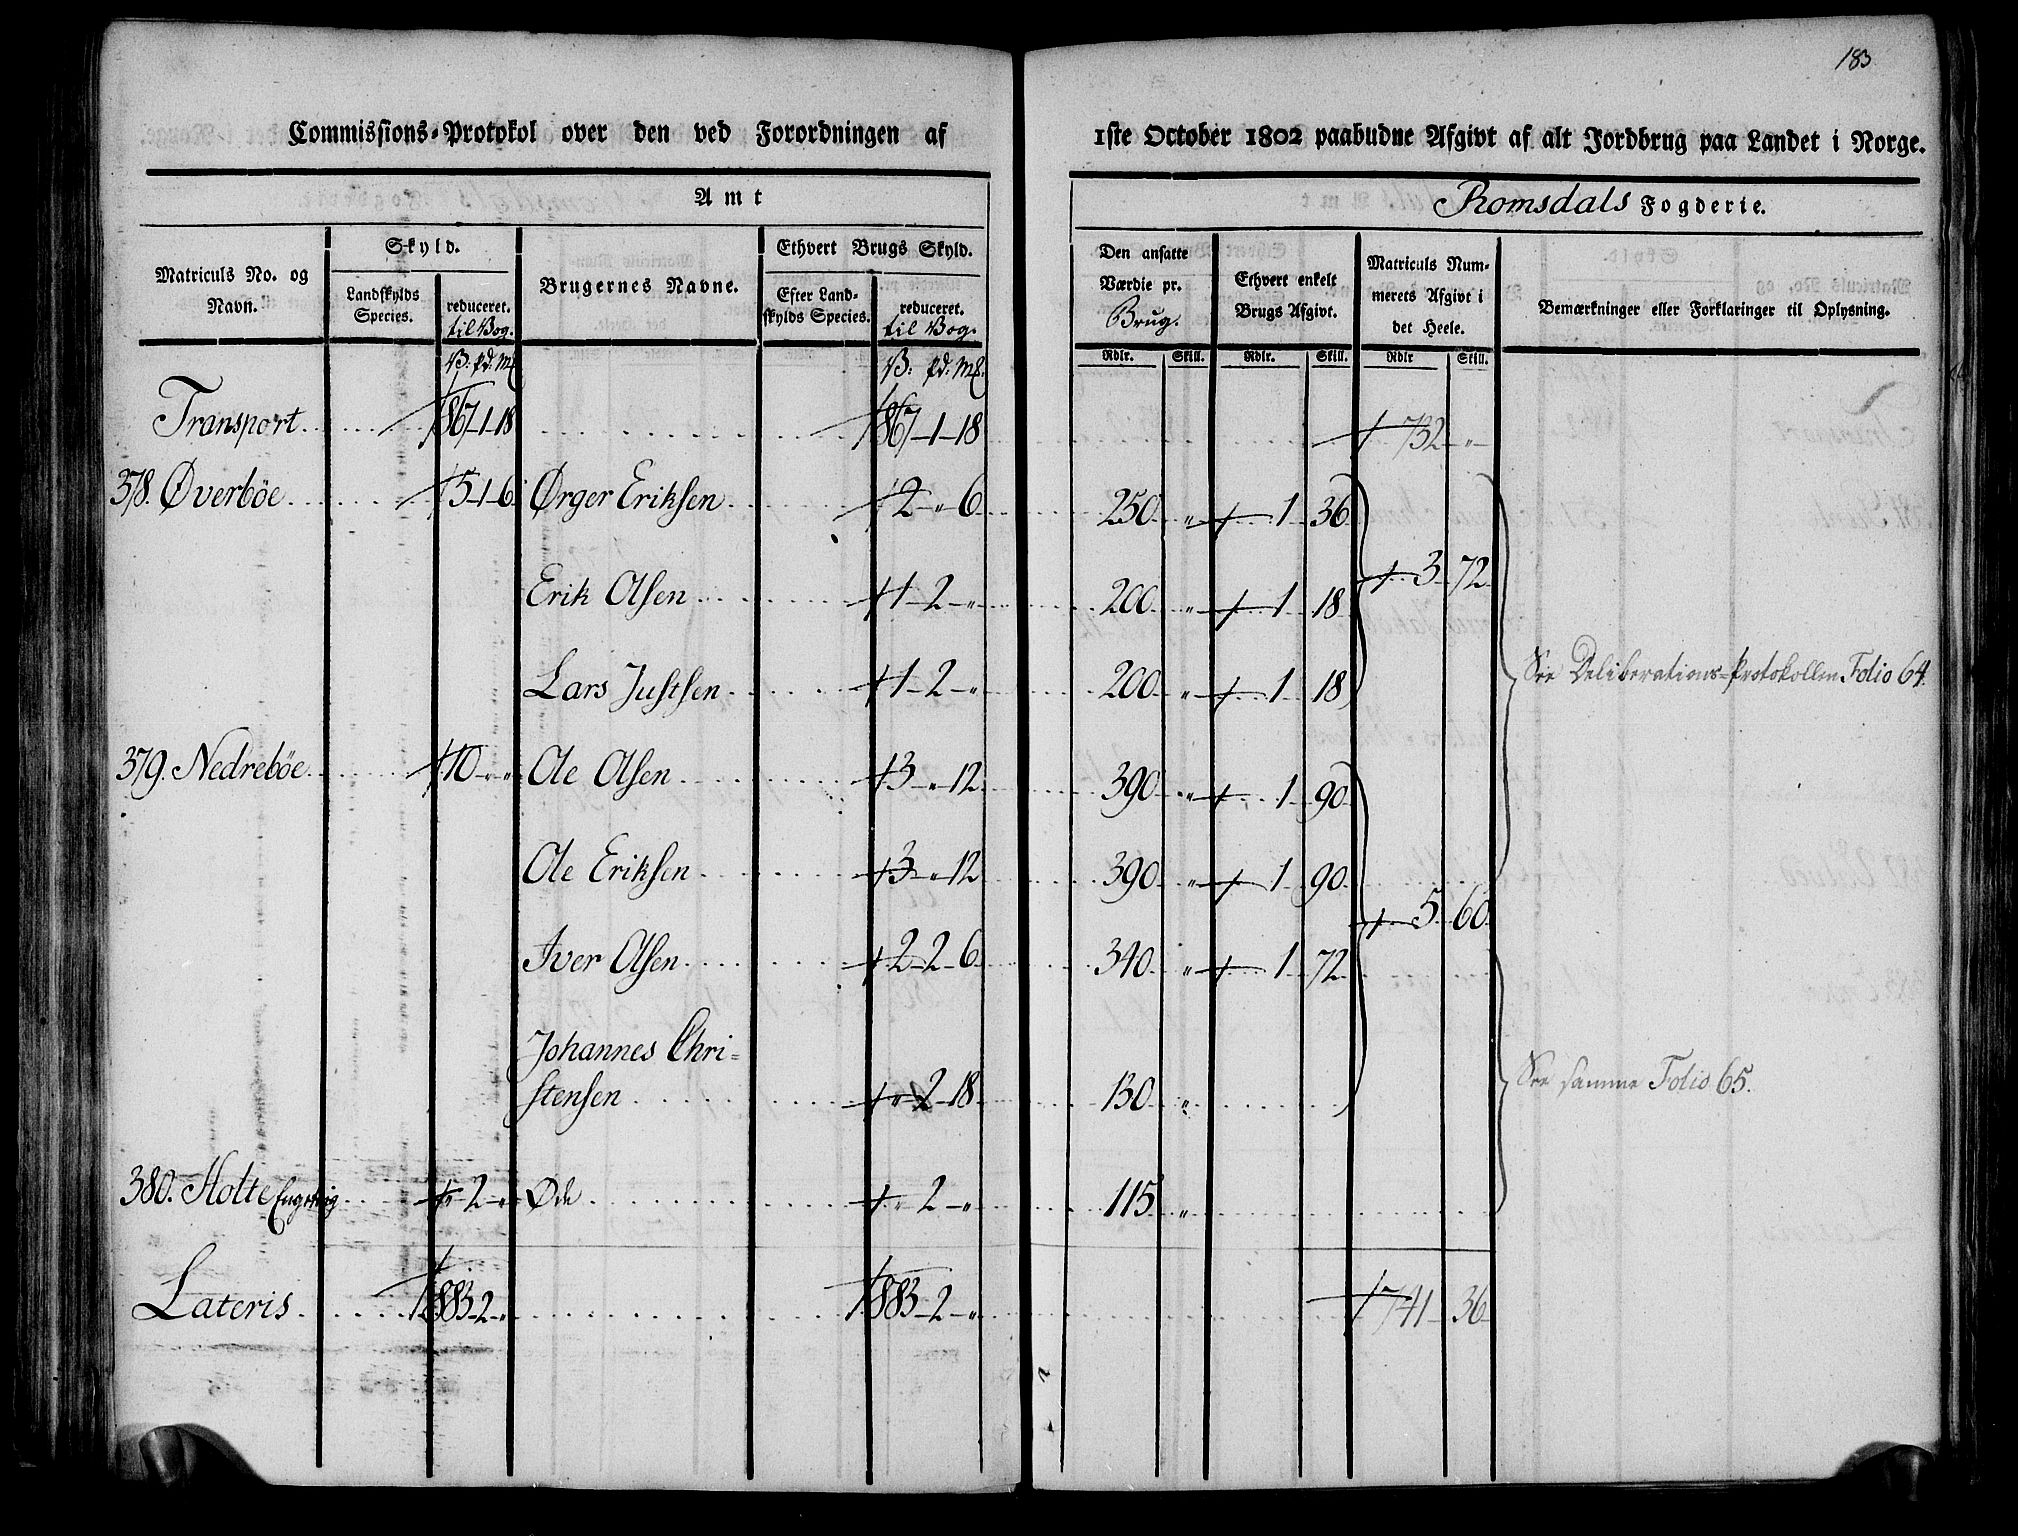 183
Commissions-Protokol over den ved Forordningen af 1ste October 1802 paabudne Afgivt af alt Jordbrug paa Landet i Norge.
Amt
Romsdals Fogderie.
Matriculs No. og Navn.
Skyld.
Landskylds Species.
reduceret. til Vog.
Brugernes Navne.
Ethvert Brugs Skyld.
Efter Landskylds Species.
reduceret. til Vog.
Den ansatte Værdie pr. Brug.
Ethvert enkelt Brugs Afgivt.
Matriculs Nummerets Afgivt i det Heele.
Bemærkninger eller Forklaringer til Oplysning.
V. pd. Mk. V: pd: Mk. Rdlr. Skill. Rdlr. Skill. Rdlr Skill.
Transport 867-1-18 867-1-18 732 "
378. Øverbøe 5-1-6 Ørger Eriksen 2-"-6 250 " 1 36
3 72
Erik Olsen 1-2-" 200 " 1 18
Lars Justsen 1-2-" 200 " 1 18
See Deliberations-Protokollen Folio 64.
379. Nedrebøe 10-"-" Ole Olsen 3-"-12 390 " 1 90
Ole Eriksen 3-"-12 390 " 1 90
5 60
Iver Olsen 2-2-6 340 " 1 72
Johannes Chri=
stensen "-2-18 130 "
See samme Folio 65.
380. Holte Engeslæt "-2-" Øde "-2-" 115 "
Lateris 883-2-" 883-2-" 741 36